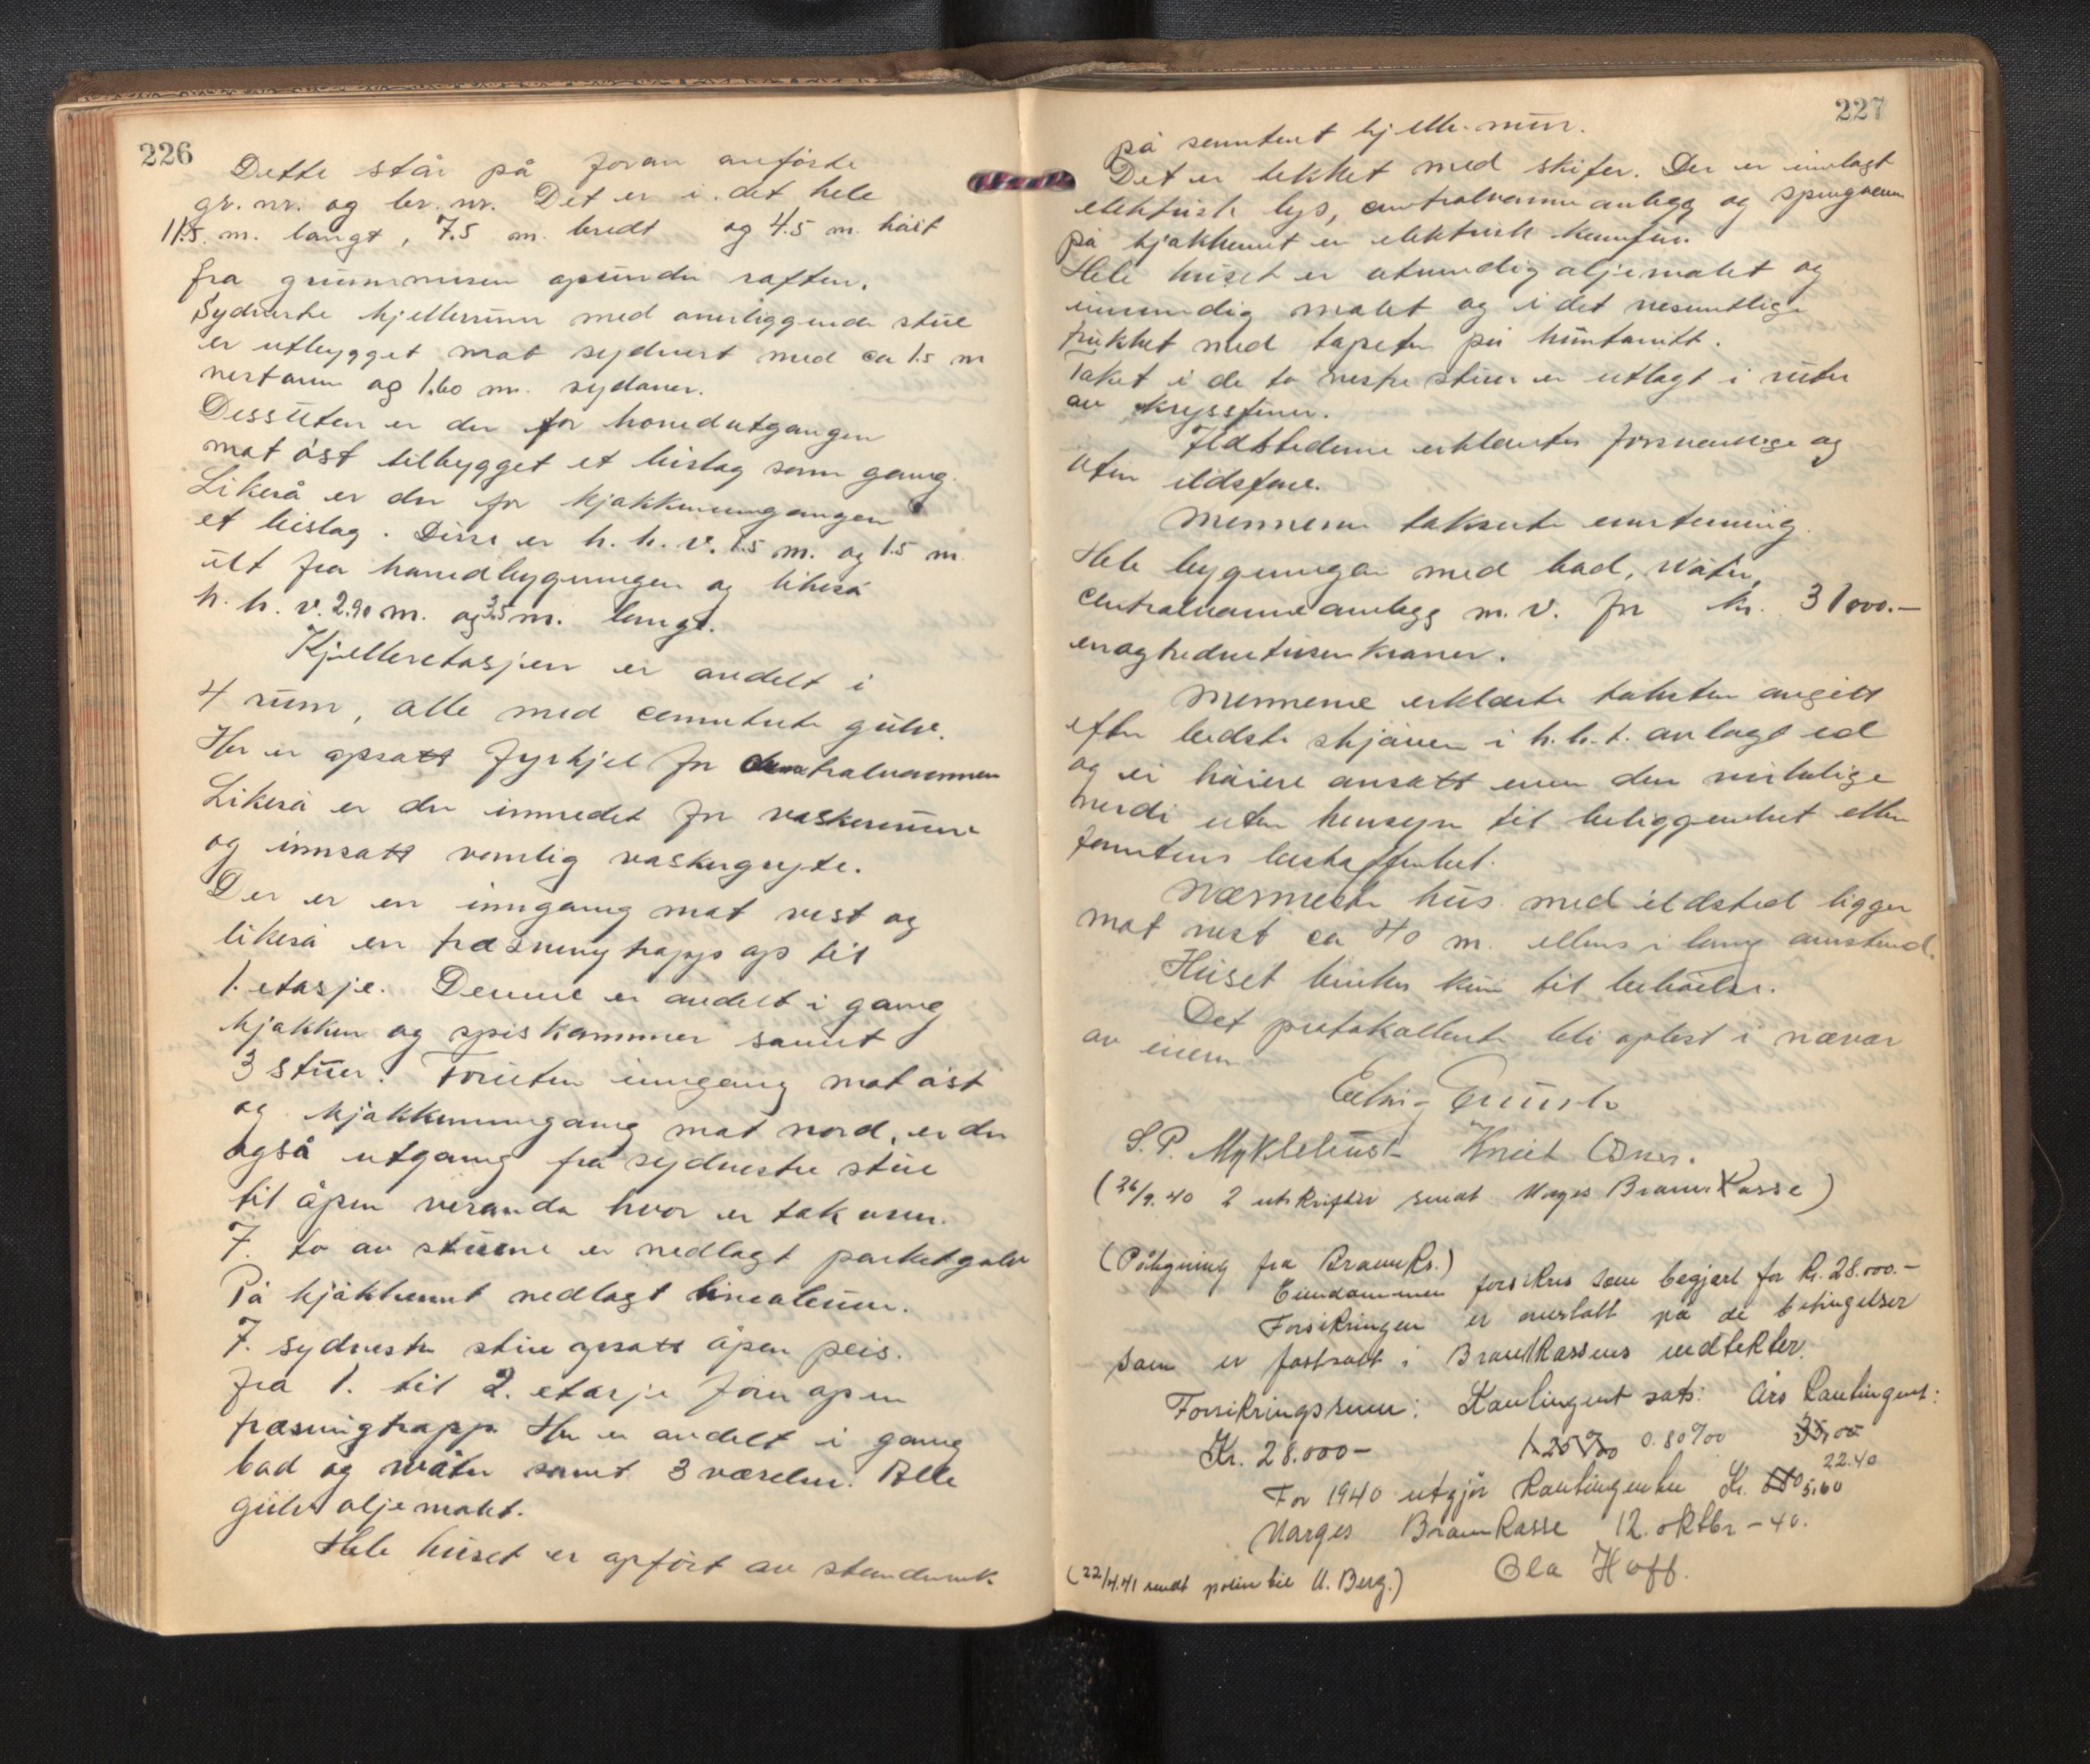 226
Dette står på foran anførte
gr. nr. og br. nr. Det er i det hele
11.5 m. langt, 7.5 m. bredt og 4.5 m. høit
fra grunnmuren opunder raften.
Sydvestre kjellerrum med overliggende stue
er utbygget mot sydvest med ca 1.5 m
og 1.60 m.
Dessuten er der for hovedutgangen
mot øst tilbygget et bislag som gang.
Likeså er der for kjøkkeninngangen
et bislag. Disse er h. h. v. 1.5 m. og 1.5 m.
ut fra hovedbygningen og likeså
h. h. v. 2.90 m. og 3.5 m. lange.
Kjelleretasjen er avdelt i
4 rum, alle med cementerte gulve.
Her er opsatt fyrkjel for centralvarmen
Likeså er der innredet for vaskerum
og innsatt vanlig vaskegryte.
Der er en inngang mot vest og
likeså en trapp op til
1. etasje. Denne er avdelt i gang
kjøkken og spiskammer samt
3 stuer. Foruten inngang mot øst
og kjøkkeninngang mot nord, er der
også utgang fra sydvestre stue
til åpen veranda hvor er tak over.
I to av stuene er nedlagt parketgolv
På kjøkkenet nedlagt linoleum.
I sydvestre stue opsatt åpen peis.
Fra 1. til 2. etasje fører åpen
trapp. Her er avdelt i gang
bad og water samt 3 værelser. Alle
gulve oljemalet.
Hele huset er opført av stenderverk
227
på cementert kjellermur.
Det er tekket med skifer. Der er innlagt
elektrisk lys, centralvarmeanlegg og
på kjøkkenet er elektrisk komfur.
Hele huset er utvendig oljemalet og
innvendig malet og i det vesentlige
trukket med tapeter på huntonitt.
Taket i de to vestre stuer er utlagt i ruter
av kryssfiner.
Ildstederne erklærtes forsvarlige og
uten ildsfare.
Mennene takserte enstemmig.
Hele bygningen med bad, water,
centralvarmeanlegg m. v. for kr. 31000.-
enogtredvetusen kroner.
Mennene erklærte taksten avgitt
efter bedste skjønn i h. h. t. avlagt ed
og ei høiere ansatt enn den virkelige
verdi uten hensyn til beliggenhet eller
tomtens beskaffenhet.
Nærmeste hus med ildsted ligger
mot vest ca 40 m. ellers i lang avstand.
Huset brukes kun til beboelse.
Det protokollerte blev oplest i nærvær
av
S. P. Myklebust Knut
(26/9.40 2 utskrifter sendt Norges Brannkasse)
(Påtegning fra Brannks.)
Eiendommen forsikres som begjært for kr. 28.000.-
Forsikringen er overtatt på de betingelser
som er fastsatt i Brannkassens vedtekter.
Forsikringssum: Kontingent sats: Års kontingent:
Kr. 28.000- 1.25‰ 0.80‰ 35.00
22.40
For 1940 utgjør kontingenten Kr. 5.60
Norges Brannkasse 12. oktbr - 40.
Ola Hoff.
(22/4.41 sendt polise til U. Berg.)